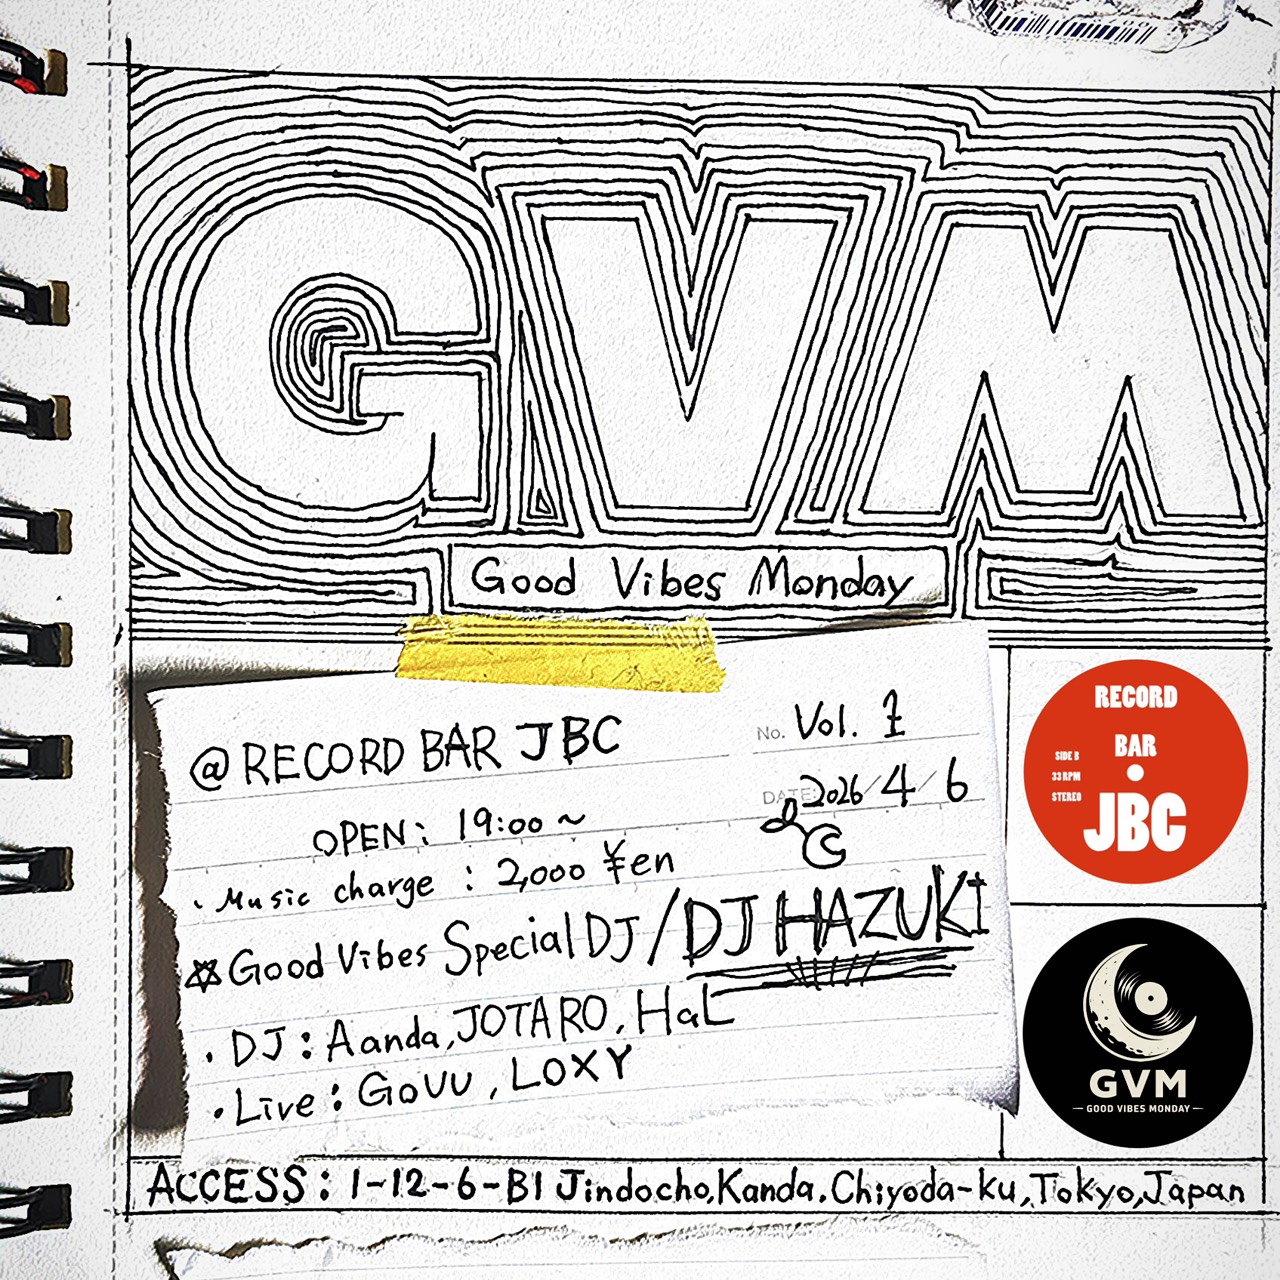 GVM
Good Vibes Monday
@ RECORD BAR JBC
No. Vol. 1
DATE 2026/4/6
OPEN: 19:00 ~
・Music charge : 2,000 ¥en
☆Good Vibes Special DJ / DJ HAZUKI
・DJ: Aanda, JOTARO, HaL
・Live: GOVU, LOXY
RECORD
BAR
SIDE B
33 RPM
STEREO
JBC
GVM
GOOD VIBES MONDAY
ACCESS: 1-12-6-B1 Jindocho,Kanda.Chiyoda-ku,Tokyo,Japan